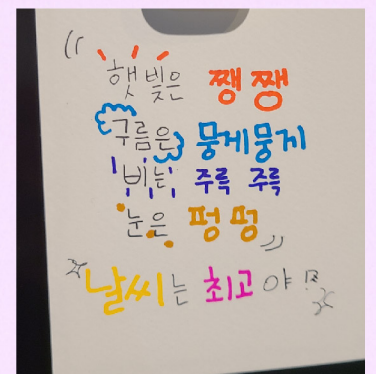 햇빛은 쨍쨍
구름은 뭉게뭉게
비는 주륵 주륵
눈은 펑펑
날씨는 최고야!